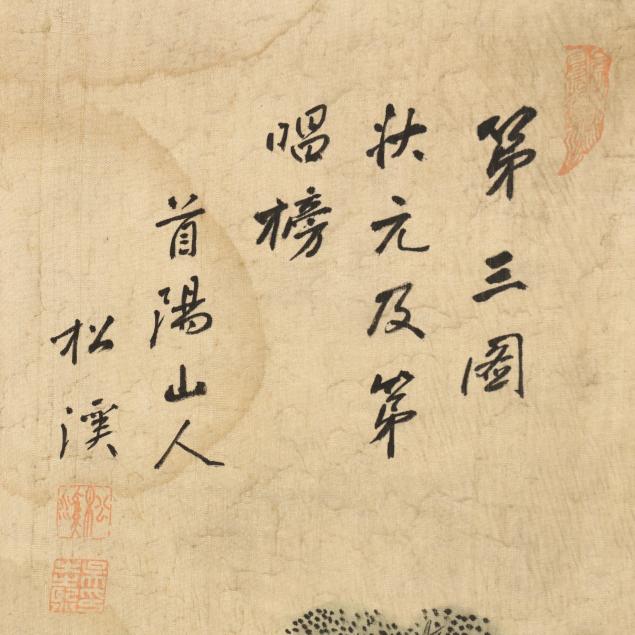 第三圖
狀元及第
唱榜
首陽山人
松溪
松溪